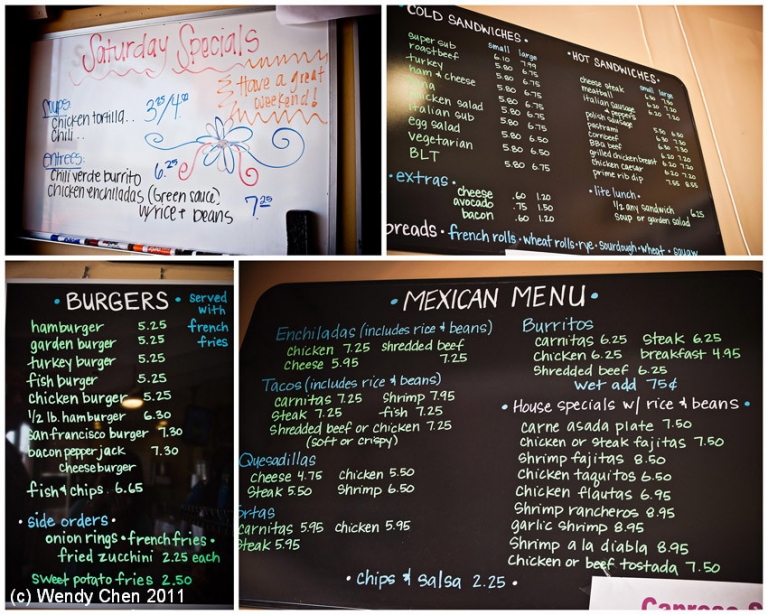 Saturday Specials
Have a great
weekend!
Soups:
chicken tortilla.. 3.25/4.00
Chili..
entrees:
Chili verde burrito 6.25
chicken enchiladas (Green sauce)
w/rice + beans 7.25
COLD SANDWICHES •
small large
super sub 6.10 7.99
roastbeef 5.80 6.75
turkey 5.80 6.75
ham & cheese 5.80 6.75
tuna
chicken salad
italian sub
egg salad
vegetarian
BLT 5.80 6.75
• extras •
cheese .60 1.20
avocado .75 1.50
bacon .60 1.20
• HOT SANDWICHES •
small large
cheese steak
meatball
italian sausage
& peppers
polish sausage
pastrami
cornbeef
BBQ beef
grilled chicken breast
chicken caesar
prime rib dip 7.55 8.55
• lite lunch •
1/2 any sandwich 6.25
soup or garden salad
breads • french rolls • wheat rolls • rye • sourdough • wheat • squaw
• BURGERS •
served
with
french
fries
hamburger 5.25
garden burger 5.25
turkey burger 5.25
fish burger 5.25
chicken burger 5.25
1/2 lb. hamburger 6.30
san francisco burger 7.30
bacon pepper jack 7.30
cheeseburger
fish & chips . 6.65
• side orders •
onion rings • french fries •
fried zucchini 2.25 each
sweet potato fries 2.50
• MEXICAN MENU •
Enchiladas (includes rice & beans)
chicken 7.25 shredded beef
cheese 5.95 7.25
Tacos (includes rice & beans)
carnitas 7.25 Shrimp 7.95
Steak 7.25 fish 7.25
Shredded beef or chicken 7.25
(soft or crispy)
Quesadillas
Cheese 4.75 Chicken 5.50
Steak 5.50 Shrimp 6.50
ortas
carnitas 5.95 chicken 5.95
steak 5.95
Burritos
carnitas 6.25 Steak 6.25
Chicken 6.25 breakfast 4.95
Shredded beef 6.25
wet add 75¢
• House specials w/ rice & beans •
carne asada plate 7.50
chicken or steak fajitas 7.50
Shrimp fajitas 8.50
Chicken taquitos 6.50
Chicken flautas 6.95
Shrimp rancheros 8.95
garlic shrimp 8.95
Shrimp a la diabla 8.95
Chicken or beef tostada 7.50
• chips & salsa 2.25 •
(c) Wendy Chen 2011